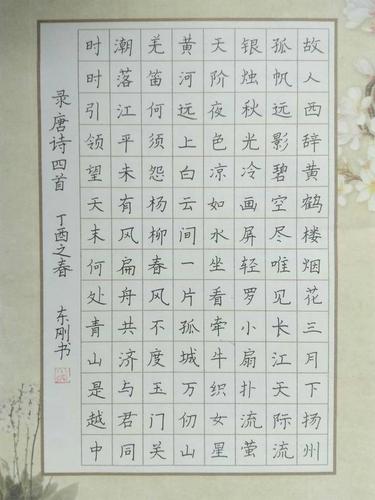 故人西辞黄鹤楼烟花三月下扬州
孤帆远影碧空尽唯见长江天际流
银烛秋光冷画屏轻罗小扇扑流萤
天阶夜色凉如水坐看牵牛织女星
黄河远上白云间一片孤城万仞山
羌笛何须怨杨柳春风不度玉门关
潮落江平未有风扁舟共济与君同
时时引领望天末何处青山是越中
录唐诗四首 丁酉之春 东刚书